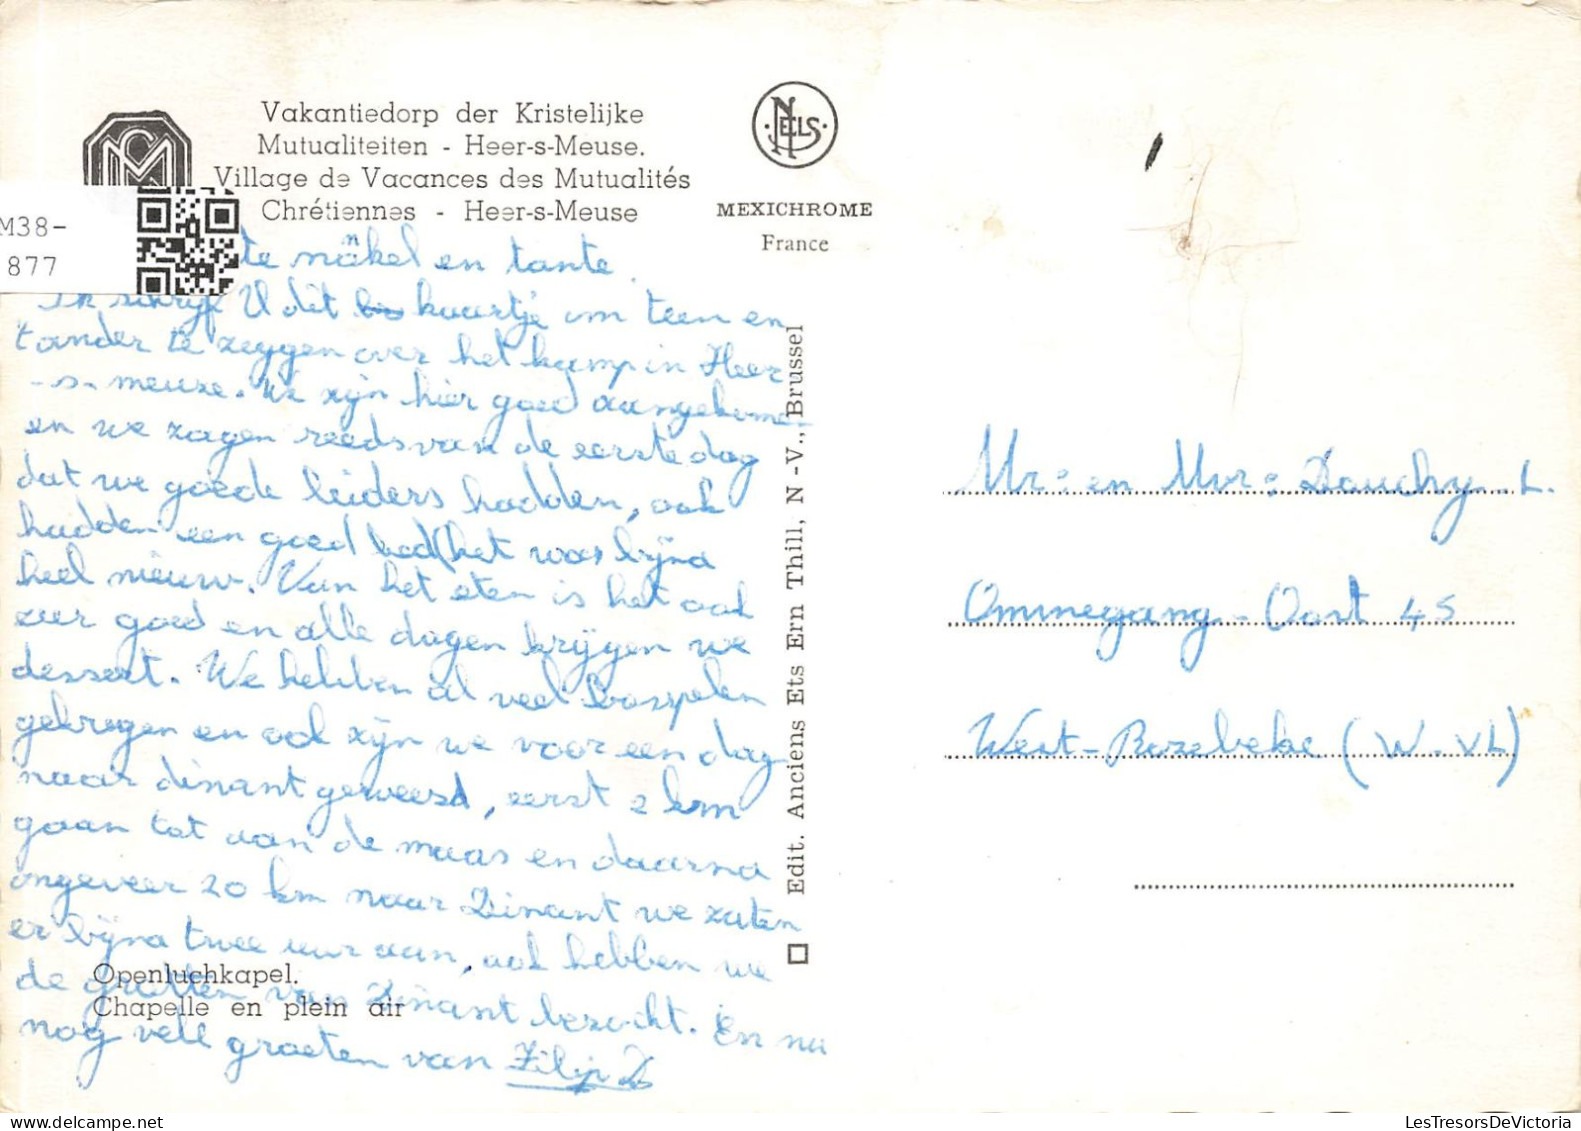 Vakantiedorp der Kristelijke
Mutualiteiten - Heer-s-Meuse.
Village de Vacances des Mutualités
Chrétiennes - Heer-s-Meuse
CM
M38-
877
NELS
MEXICHROME
France
te nonkel en tante
Ik schrijf U dit kaartje om teen en
tander te zeggen over het kamp in Heer
-s-meuze. We zijn hier goed aangekomen
en we zagen reeds van de eerste dag
dat we goede leiders hadden, ook
hadden een goed bed (het was bijna
heel nieuw. Van het eten is het ook
zeer goed en alle dagen krijgen we
dessert. We hebben al veel bosspelen
gekregen en ook zijn we voor een dag
naar dinant geweest, eerst 2 km
gaan tot aan de maas en daarna
ongeveer 20 km naar Dinant we zaten
er bijna twee uur aan, ook hebben we
de grotten van Dinant bezocht. En nu
nog vele groeten van Filip D
Openluchkapel.
Chapelle en plein air
Edit. Anciens Ets Ern Thill, N-V., Brussel
Mr: en Mvr: Dauchy-L.
Ommegang-Oost 45
West-Rozebeke (W-VL)
LesTresorsDeVictoria